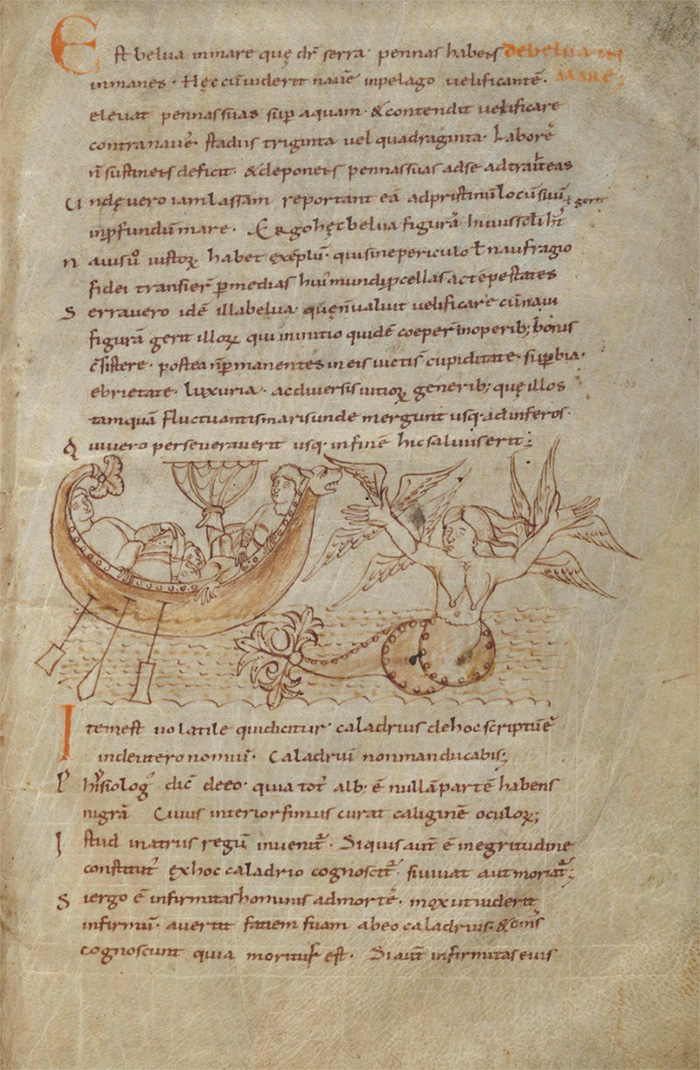 Est belua inmare quę dr̄ serra· pennas habens debelua in
inmanes· Hęc cū uiderit nauē inpelago uelificantē· mare:
eleuat pennas suas sup aquam· & contendit uelificare
contra nauē· stadiis triginta uel quadraginta· Laborē
n̄ sustinens deficit· & deponens pennas suas adse adtrait eas
Undę uero iam lassam reportant eā adpristinū locū suū
inpfundum mare· Ergo hęc belua figurā huius sclī
nauiū iustorꝝ habet exeplū· qui sine periculo ł naufragio
fidei transier̄ p medias huī mundi pcellas ac tēpestates
Serra uero idē illa belua· quę n̄ ualuit uelificare cū naui
figurā gerit illorꝝ qui in initio quidē coeper̄ in operib; bonis
c̄sistere· postea n̄ pmanentes in eis uicti s̄ cupiditate· supbia·
ebrietate· luxuria· ac diuersis uitiorꝝ generib; quę illos
tamquā fluctuantis maris undę mergunt usq· ad inferos·
Qui uero perseuerauerit usq· in finē hic saluus erit:
Item est uolatile qui dicitur caladrius de hoc scriptū ē
in deuteronomiū· Caladriū non manducabis;
Phisiologꝰ dic̄ de eo· quia totꝰ albꝰ ē nullā partē habens
nigrā Cuius interior fimus curat caliginē oculorꝝ;
Istud in atriis regū inuenit᷑· Si quis aut̄ ē in egritudine
constitutꝰ ex hoc caladrio cognoscit᷑· si uiuat aut moriat᷑;
Si ergo ē infirmitas hominis ad mortē· mox ut uiderit
infirmū· auertit faciem suam ab eo caladrius· & om̄s
cognoscunt quia moriturꝰ est· Si aut̄ infirmitas eius